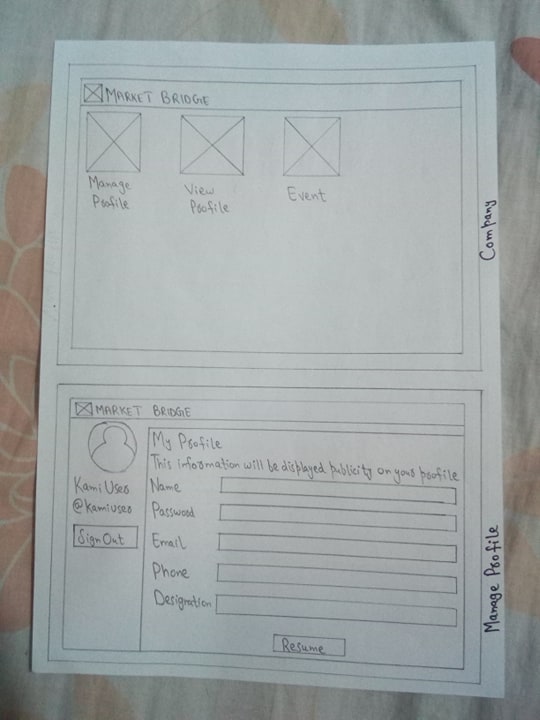 MARKET BRIDGE
Manage
Profile
View
Profile
Event
Company
MARKET BRIDGE
Kami User
@kamiuser
Sign Out
My Profile
This information will be displayed publicity on your profile
Name
Password
Email
Phone
Designation
Resume
Manage Profile